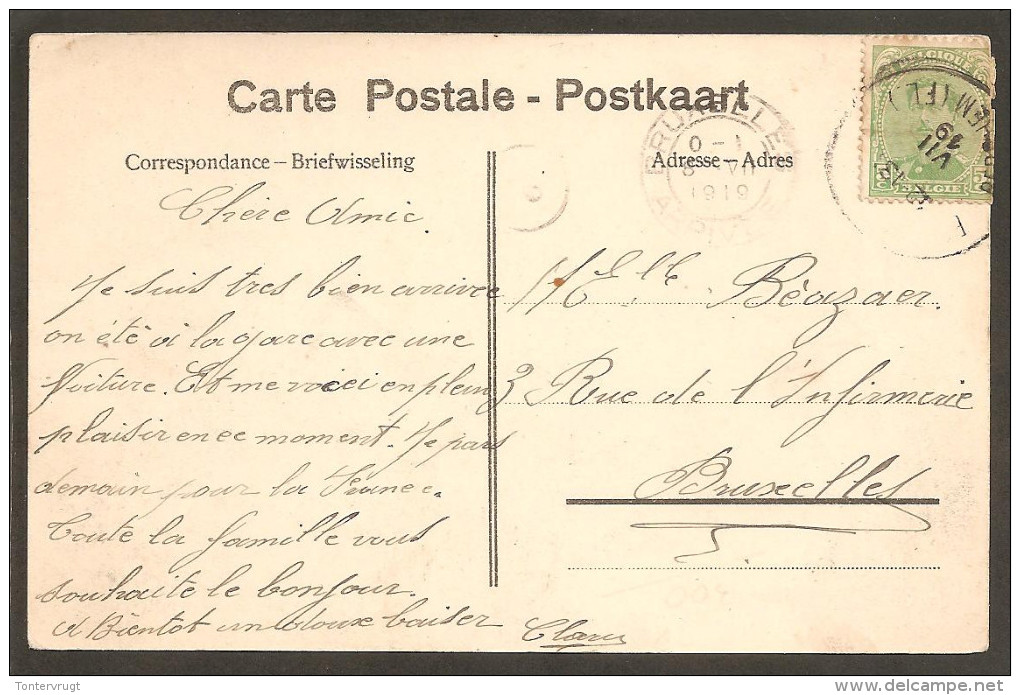 Carte Postale - Postkaart
Correspondance – Briefwisseling
Adresse – Adres
BRUXELLES
0 - 1
1919
BELGIQUE
BELGIE
VII
19
(FL)
Chère Amie
Je suis tres bien arrivée
on été à la gare avec une
Voiture. Et me voici en plein
plaisir en ce moment. Je pars
demain pour la France.
Toute la famille vous
souhaite le bonjour.
A Bientot un doux baiser
Clary
Mlle Béazaer
3 Rue de l'Infirmerie
Bruxelles
Tontervrugt
delcampe.net